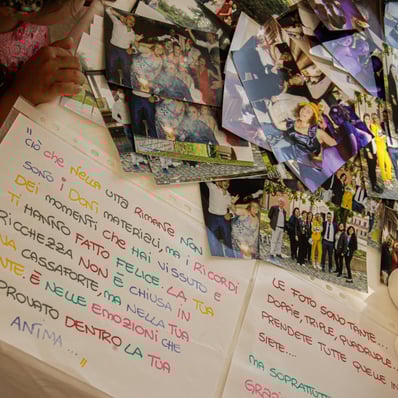 "
CIÒ CHE NELLA VITA RIMANE, NON
SONO I DONI MATERIALI, MA I RICORDI
DEI MOMENTI CHE HAI VISSUTO E
TI HANNO FATTO FELICE. LA TUA
RICCHEZZA NON È CHIUSA IN
UNA CASSAFORTE, MA NELLA TUA
NTE. È NELLE EMOZIONI CHE
PROVATO DENTRO LA TUA
ANIMA.... "
LE FOTO SONO TANTE...
DOPPIE, TRIPLE, QUADRUPLE...
PRENDETE TUTTE QUELLE IN
SIETE...
MA SOPRATTUT
GRAZI